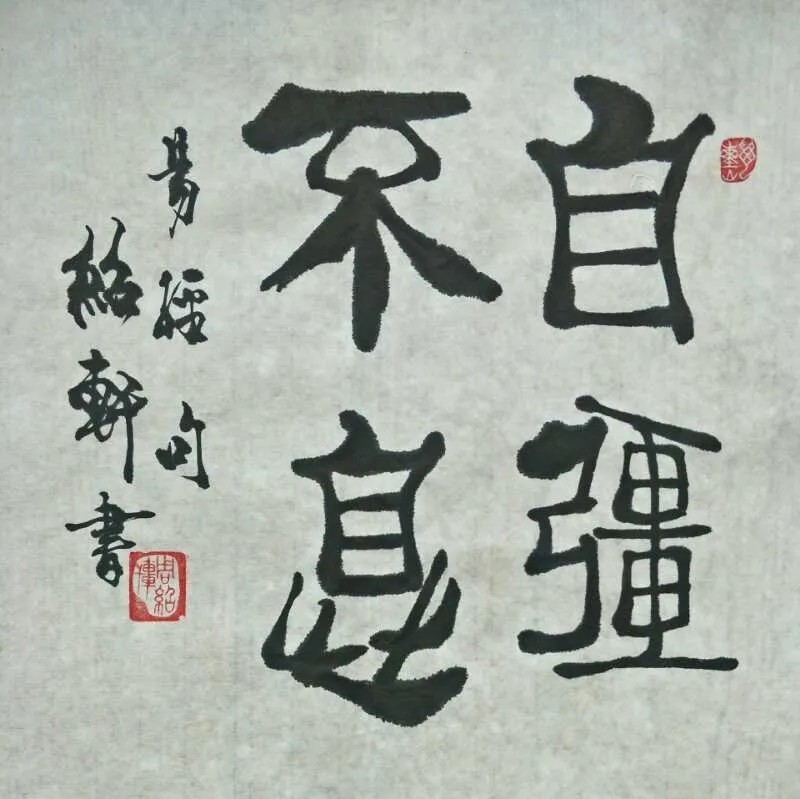 自彊
不息
易經句
紹軒書